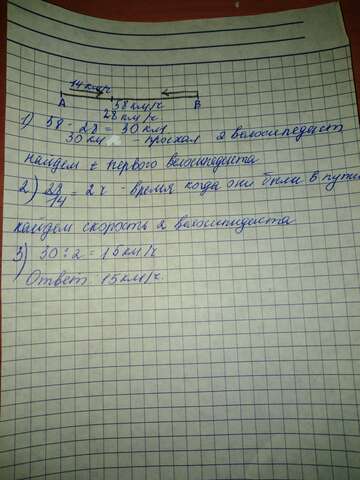 14 км/ч
A 58 км/ч B
28 км/ч
1) 58 - 28 = 30 км
30 км - проехал 2 велосипедист
найдем t первого велосипедиста
2) 28/14 = 2 ч - время когда они были в пути
найдем скорость 2 велосипедиста
3) 30 : 2 = 15 км/ч
Ответ 15 км/ч.